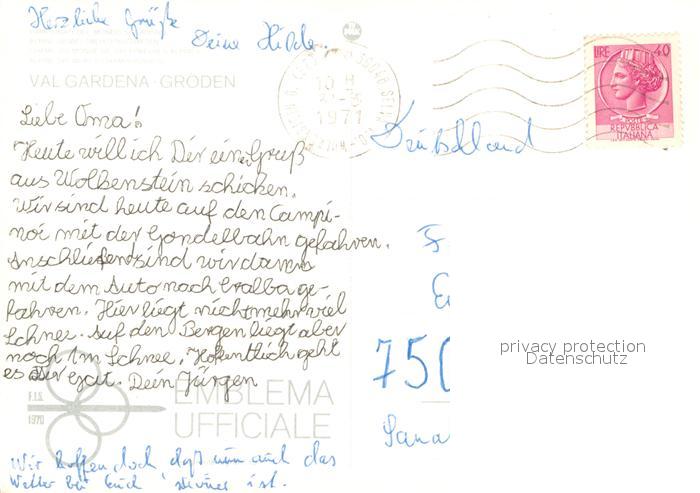 Herzliche Grüße
Deine Hilde.
VAL GARDENA - GRÖDEN
10 H
1971
LIRE 40
REPVBBLICA
ITALIANA
Deutschland
Liebe Oma!
Heute will ich Dir ein Gruß
aus Wolkenstein schicken.
Wir sind heute auf den Campi-
noi mit der Gondelbahn gefahren.
Anschließend sind wir dann
mit dem Auto nach Cralba ge-
fahren. Hier liegt nicht mehr viel
Schnee. Auf den Bergen liegt aber
noch 1m Schnee. Hofentlich geht
es Dir gut. Dein Jürgen
750
privacy protection
Datenschutz
F.I.S.
1970
EMBLEMA
UFFICIALE
Sana
Wir hoffen doch daß nun auch das
Wetter bei Euch schöner ist.